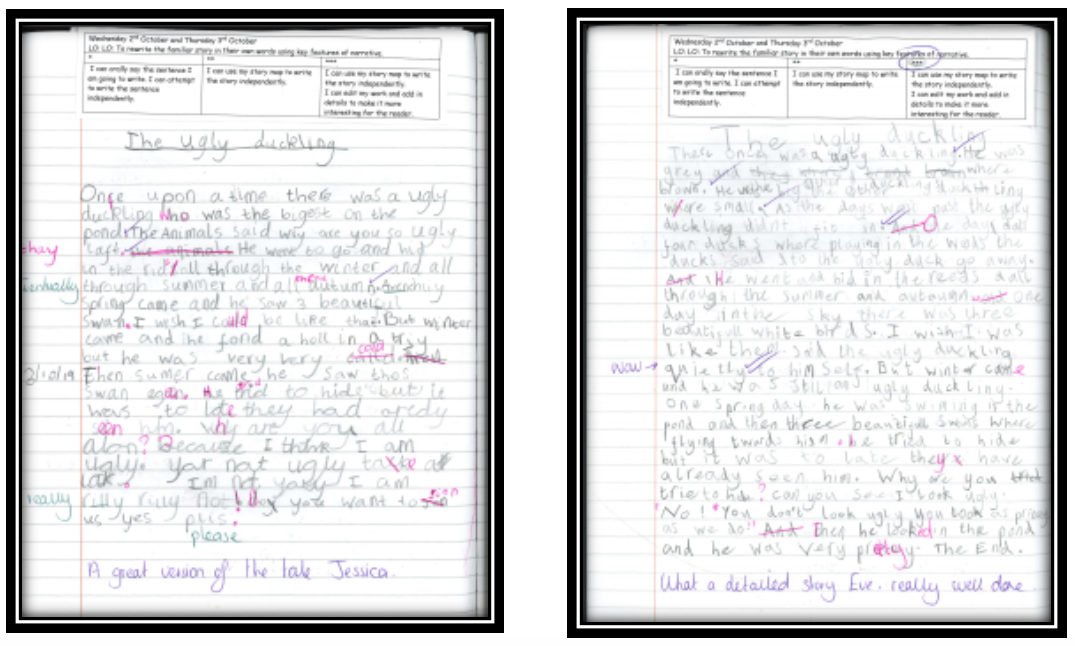 Wednesday 2nd October and Thursday 3rd October
LO: LO: To rewrite the familiar story in their own words using key features of narrative.
*
**
***
I can orally say the sentence I
am going to write. I can attempt
to write the sentence
independently.
I can use my story map to write
the story independently.
I can use my story map to write
the story independently.
I can edit my work and add in
details to make it more
interesting for the reader.
The ugly duckling
Once upon a time there was a ugly
duckling who was the bigest on the
pond. The Animals said why are you so ugly
thay
He went to go and hid
in the all through the winter and all
through summer and all autumn.
spring came and he saw 3 beautiful
swan. I wish I could be like that. But winter
came and he fond a holl in a
but he was very very cold
3/10/19 Then sumer came he saw thos
swan egen. He trid to hide but it
was to late they had
seen him. why are you all
alon? Because I think I am
ugly. Yor not ugly take a
look. Im not yay I am
really rilly rilly not! Do you want to join
us yes plis.
please
A great version of the tale Jessica.
Wednesday 2nd October and Thursday 3rd October
LO: LO: To rewrite the familiar story in their own words using key features of narrative.
*
**
***
I can orally say the sentence I
am going to write. I can attempt
to write the sentence
independently.
I can use my story map to write
the story independently.
I can use my story map to write
the story independently.
I can edit my work and add in
details to make it more
interesting for the reader.
The ugly duckling
There once was a ugly duckling. He was
grey and where
brown. the other duckling
where small. As the days past the ugly
duckling didn't fit in. One day
four ducks where playing in the the
ducks said to the ugly duck go away.
He went and hid in the reeds all
through the summer and autaumn One
day in the sky there was three
beautifull white birds. I wish I was
like them said the ugly duckling
wow quietly to him self. But winter came
and he was still an ugly duckling.
One spring day he was swiming in the
pond and then three beautifull swans where
flying twords him. he tried to hide
but it was to late they have
already seen him. Why are you
trie to hide? can you see I look ugly.
"No!" "You don't look ugly you look as
as we do!" Then he looked in the pond
and he was very pretty. The End.
What a detailed story Eve, really well done.